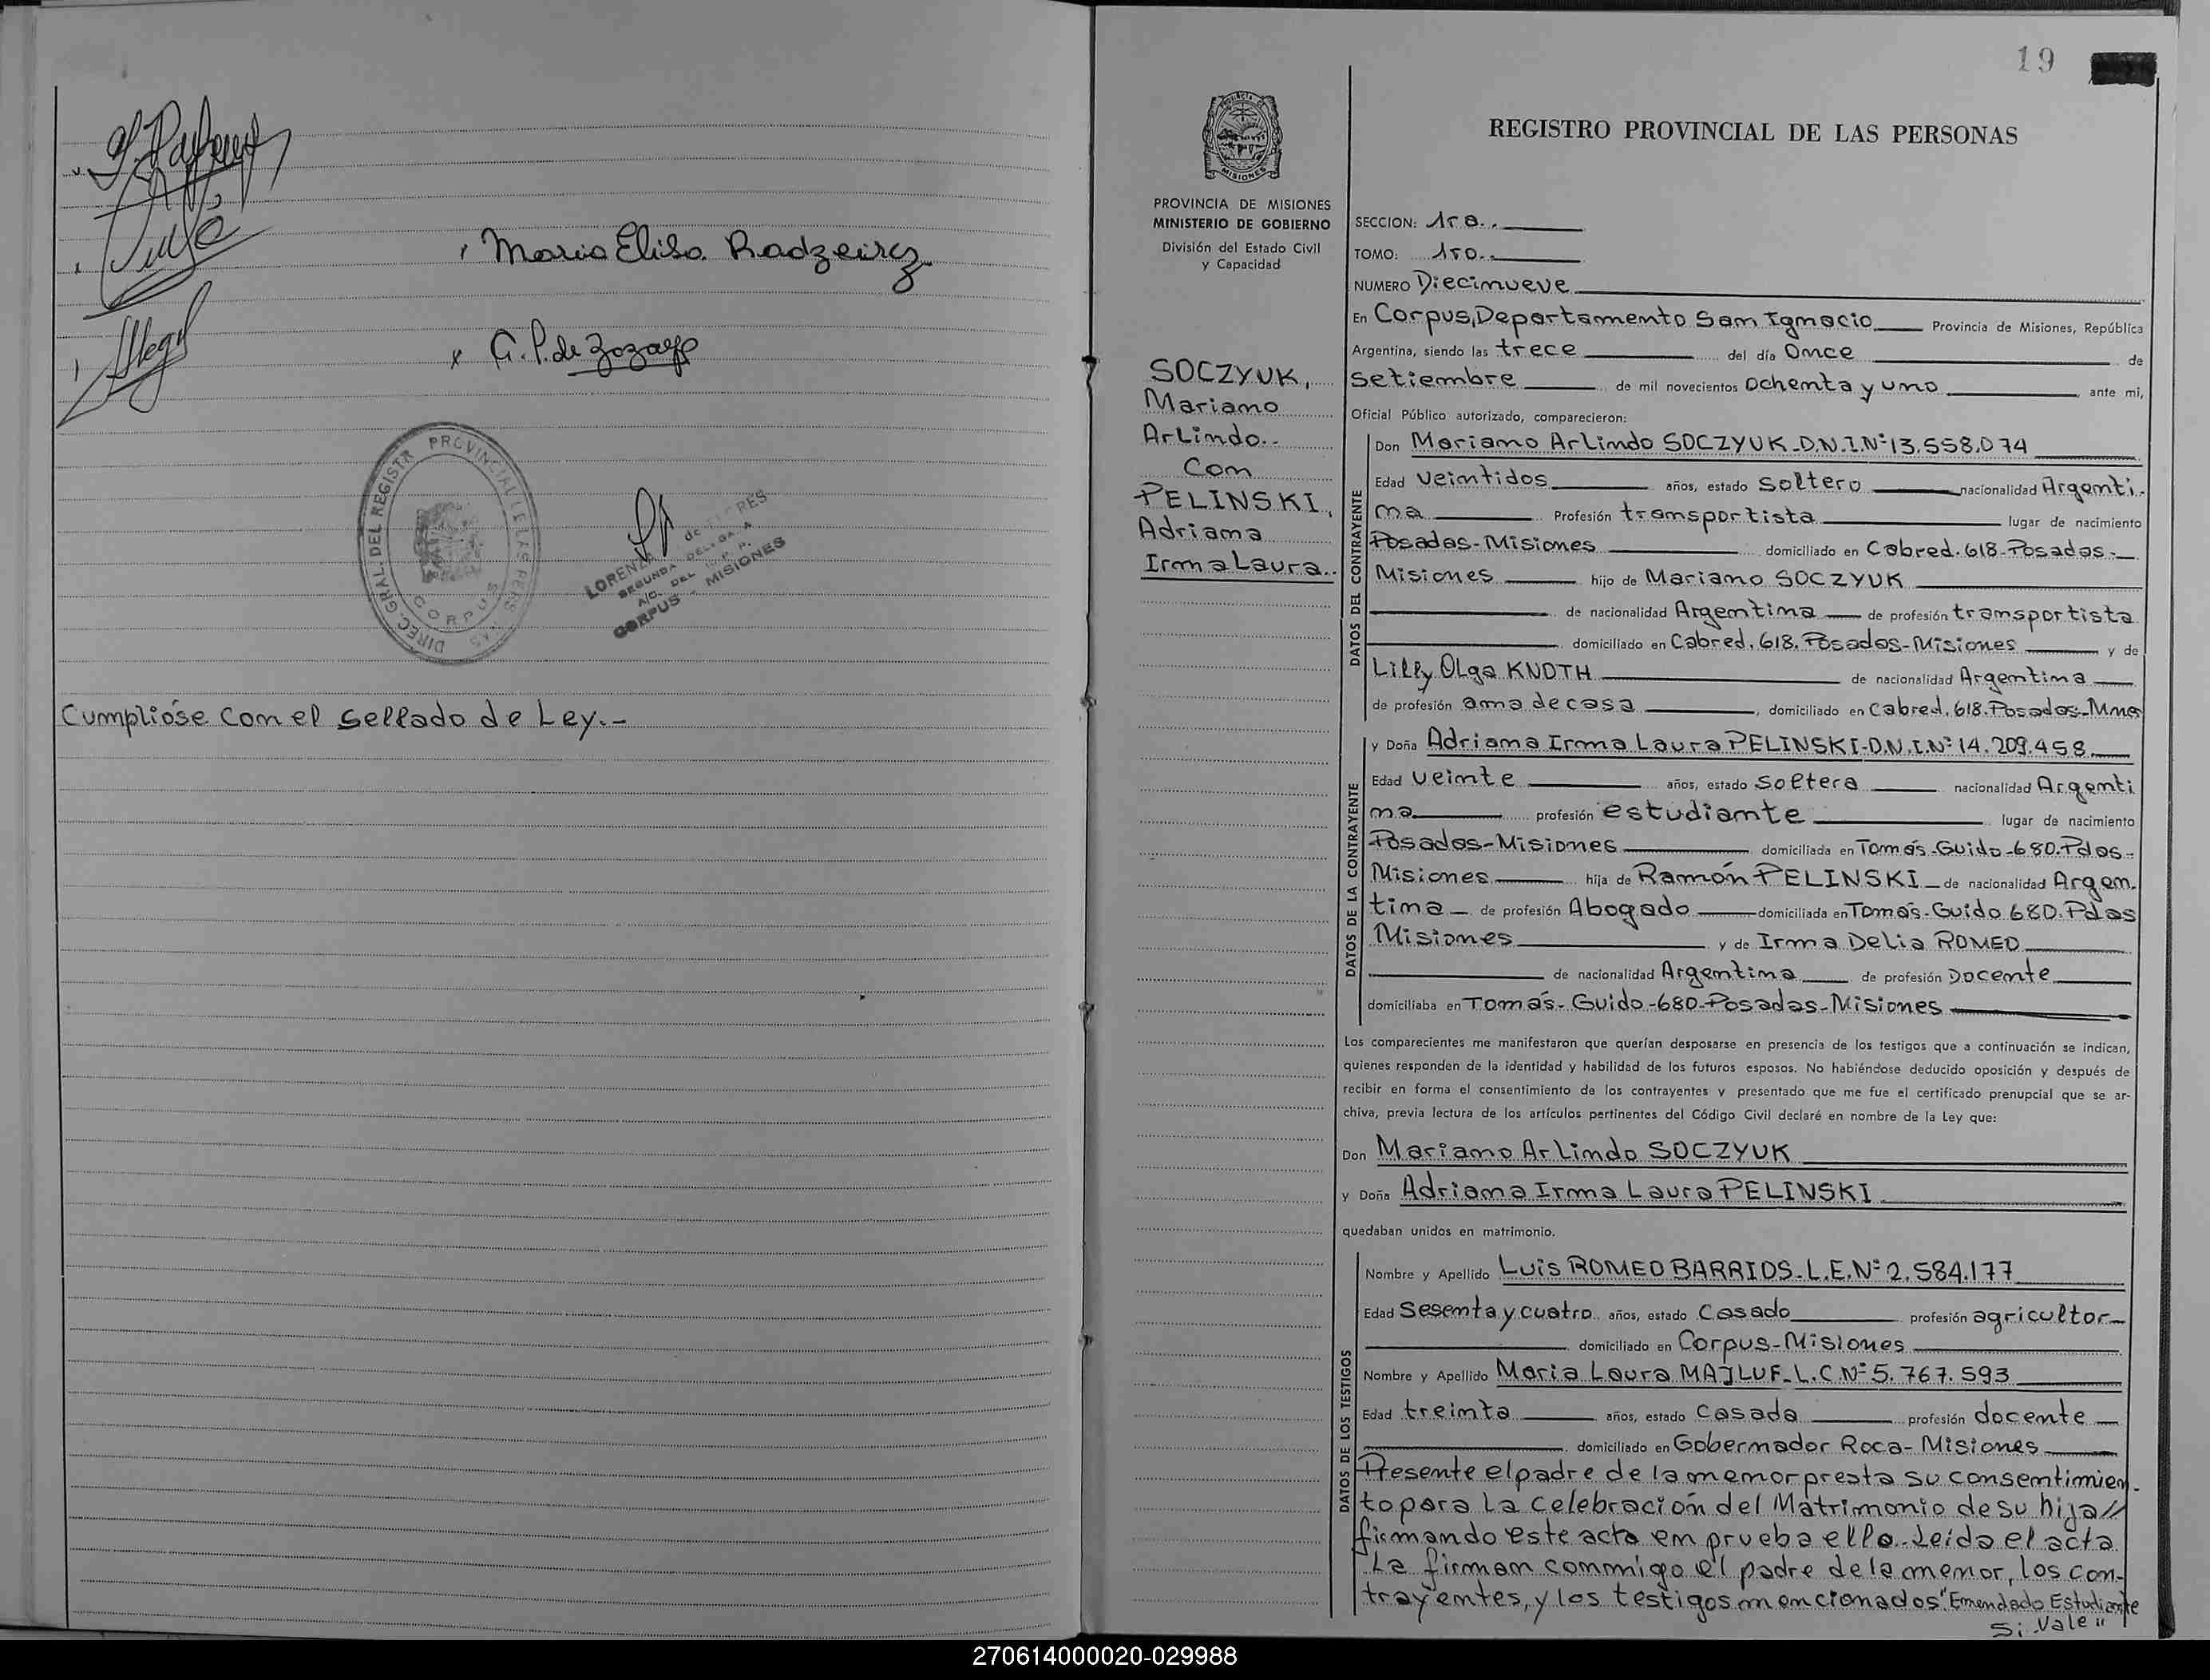 Maria Elisa Radzeircz
G. P. de Zozaya
DIREC. GRAL. DEL REGISTR PROVINCIAL DE LAS PERS
CORPUS
LORENZA de FLORES
SEGUNDA DELEGADA
A/C. DEL R. P. P.
CORPUS - MISIONES
Cumplióse con el sellado de Ley.-
19
PROVINCIA DE MISIONES
MINISTERIO DE GOBIERNO
División del Estado Civil
y Capacidad
SOCZYUK,
Mariano
Arlindo..
Con
PELINSKI,
Adriana
Irma Laura..
REGISTRO PROVINCIAL DE LAS PERSONAS
SECCION: 1ra..
TOMO: 1ro..
NUMERO Diecinueve
En Corpus, Departamento San Ignacio Provincia de Misiones, República
Argentina, siendo las trece del día Once de
Setiembre de mil novecientos Ochenta y uno ante mi,
Oficial Público autorizado, comparecieron:
DATOS DEL CONTRAYENTE
Don Mariano Arlindo SOCZYUK-D.N.I.Nº13.558.074
Edad Veintidos años, estado Soltero nacionalidad Argenti-
na Profesión transportista lugar de nacimiento
Posadas-Misiones domiciliado en Cabred.618-Posadas-
Misiones hijo de Mariano SOCZYUK
de nacionalidad Argentina de profesión transportista
domiciliado en Cabred.618.Posadas-Misiones y de
Lilly Olga KNOTH de nacionalidad Argentina
de profesión ama de casa, domiciliado en Cabred.618.Posadas-Mnes
DATOS DE LA CONTRAYENTE
y Doña Adriana Irma Laura PELINSKI-D.N.I.Nº14.209.458
Edad Veinte años, estado Soltera nacionalidad Argenti
na profesión estudiante lugar de nacimiento
Posadas-Misiones domiciliada en Tomás-Guido-680.Pdas-
Misiones hija de Ramón PELINSKI de nacionalidad Argen-
tina de profesión Abogado domiciliada en Tomás-Guido 680.Pdas
Misiones y de Irma Delia ROMEO
de nacionalidad Argentina de profesión Docente
domiciliaba en Tomás-Guido-680-Posadas-Misiones
Los comparecientes me manifestaron que querían desposarse en presencia de los testigos que a continuación se indican,
quienes responden de la identidad y habilidad de los futuros esposos. No habiéndose deducido oposición y después de
recibir en forma el consentimiento de los contrayentes y presentado que me fue el certificado prenupcial que se ar-
chiva, previa lectura de los artículos pertinentes del Código Civil declaré en nombre de la Ley que:
Don Mariano Arlindo SOCZYUK
y Doña Adriana Irma Laura PELINSKI
quedaban unidos en matrimonio.
DATOS DE LOS TESTIGOS
Nombre y Apellido Luis ROMEO BARRIOS-L.E.Nº2.584.177
Edad Sesenta y cuatro años, estado Casado profesión agricultor
domiciliado en Corpus-Misiones
Nombre y Apellido Maria Laura MAJLUF-L.C.Nº5.767.593
Edad treinta años, estado Casada profesión docente
domiciliado en Gobernador Roca-Misiones
Presente el padre de la menor presta su consentimien-
to para la celebración del Matrimonio de su hija//
firmando este acta en prueba ello. Leída el acta
la firman conmigo el padre de la menor, los con-
trayentes, y los testigos mencionados "Enmendado Estudiante
Si Vale"
270614000020-029988